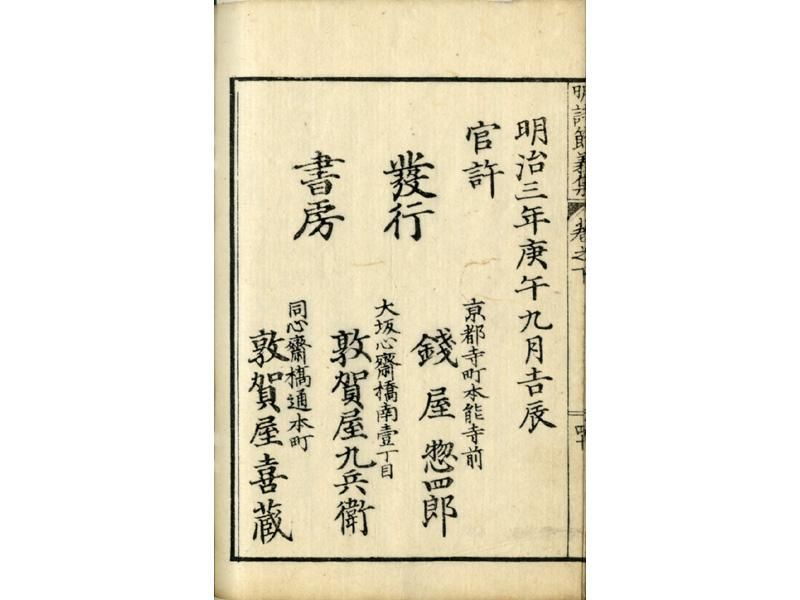 明詩節義集
卷之下
四十
明治三年庚午九月吉辰
官許
發行
書房
京都寺町本能寺前
錢屋惣四郎
大坂心齋橋南壹丁目
敦賀屋九兵衛
同心齋橋通本町
敦賀屋喜藏